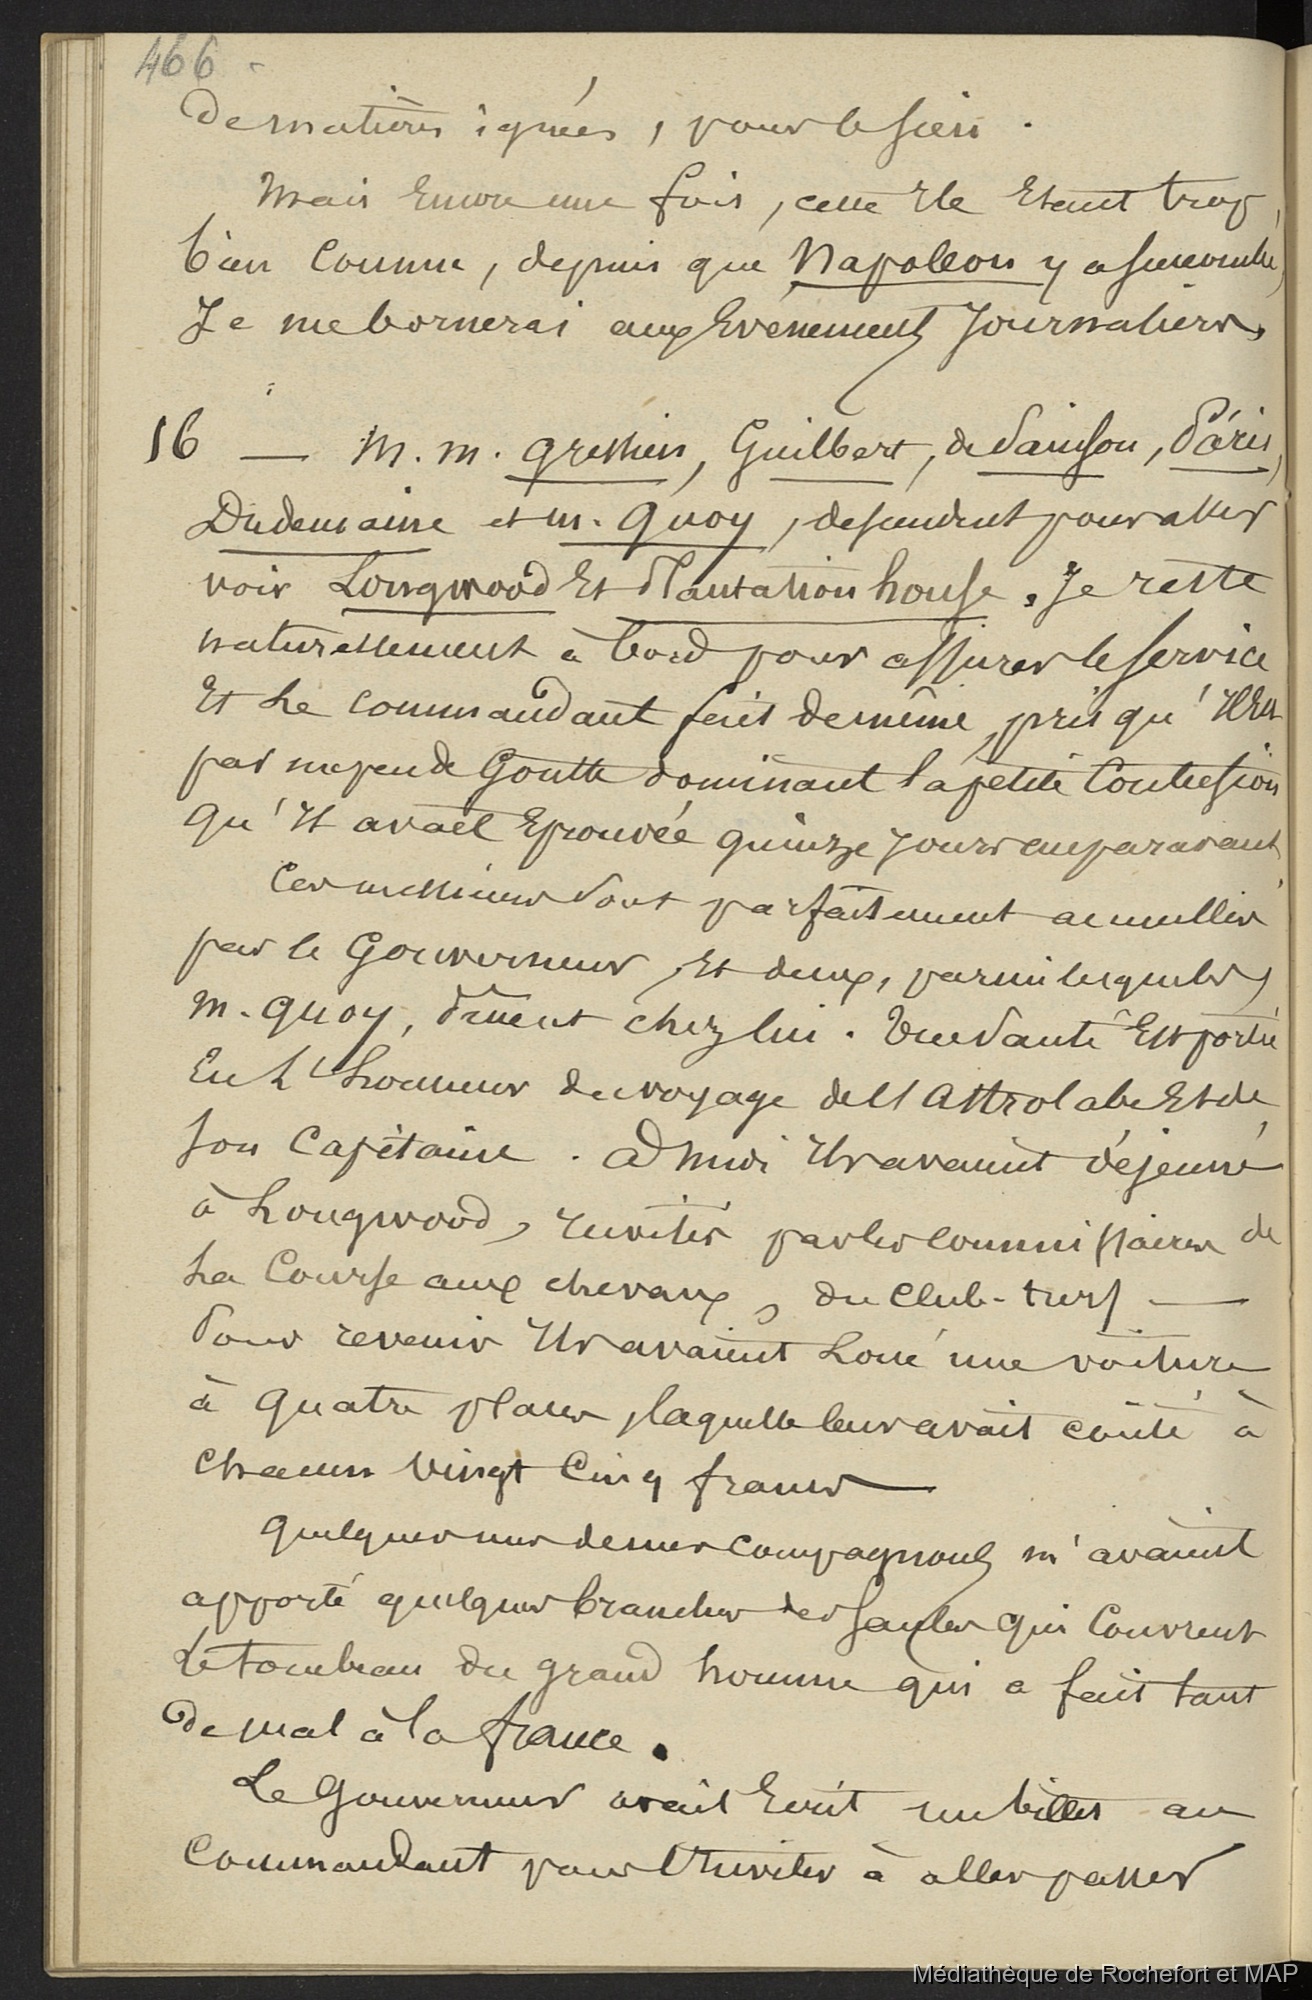 466 -
De matières ignées, pour le sien.
Mais Encore une fois, cette Ile Etant trop
bien Connue, depuis que Napoléon y a succombé,
Je me bornerai aux Evénements Journaliers.
16 — M. M. Gressien, Guilbert, de Sainson, Pâris,
Dudemaine et M. Quoy, descendent pour aller
voir Longwood Et Plantation house. Je reste
naturellement à bord pour assurer le service
Et Le Commandant fait de même, pris qu'Il est
par un peu de Goutte dominant la petite Contusion
qu'Il avait Eprouvée quinze Jours auparavant.
Ces messieurs sont parfaitement accueillis
par le Gouverneur, Et deux, parmi lesquels
M. Quoy, dînent chez lui. Une santé Est portée
En L'honneur du voyage de l'Astrolabe Et de
son Capitaine. A Midi Ils avaient déjeuné
à Longwood, Invités par les Commissaires de
La Course aux chevaux, du Club-turf —
Pour revenir Ils avaient Loué une voiture
à quatre places, laquelle leur avait coûté à
chacun vingt Cinq francs —
Quelques uns de mes compagnons m'avaient
apporté quelques branches des saules qui Couvrent
Le tombeau du grand homme qui a fait tant
De mal à la france.
Le Gouverneur avait Ecrit un billet au
Commandant pour l'Inviter à aller passer
Médiathèque de Rochefort et MAP